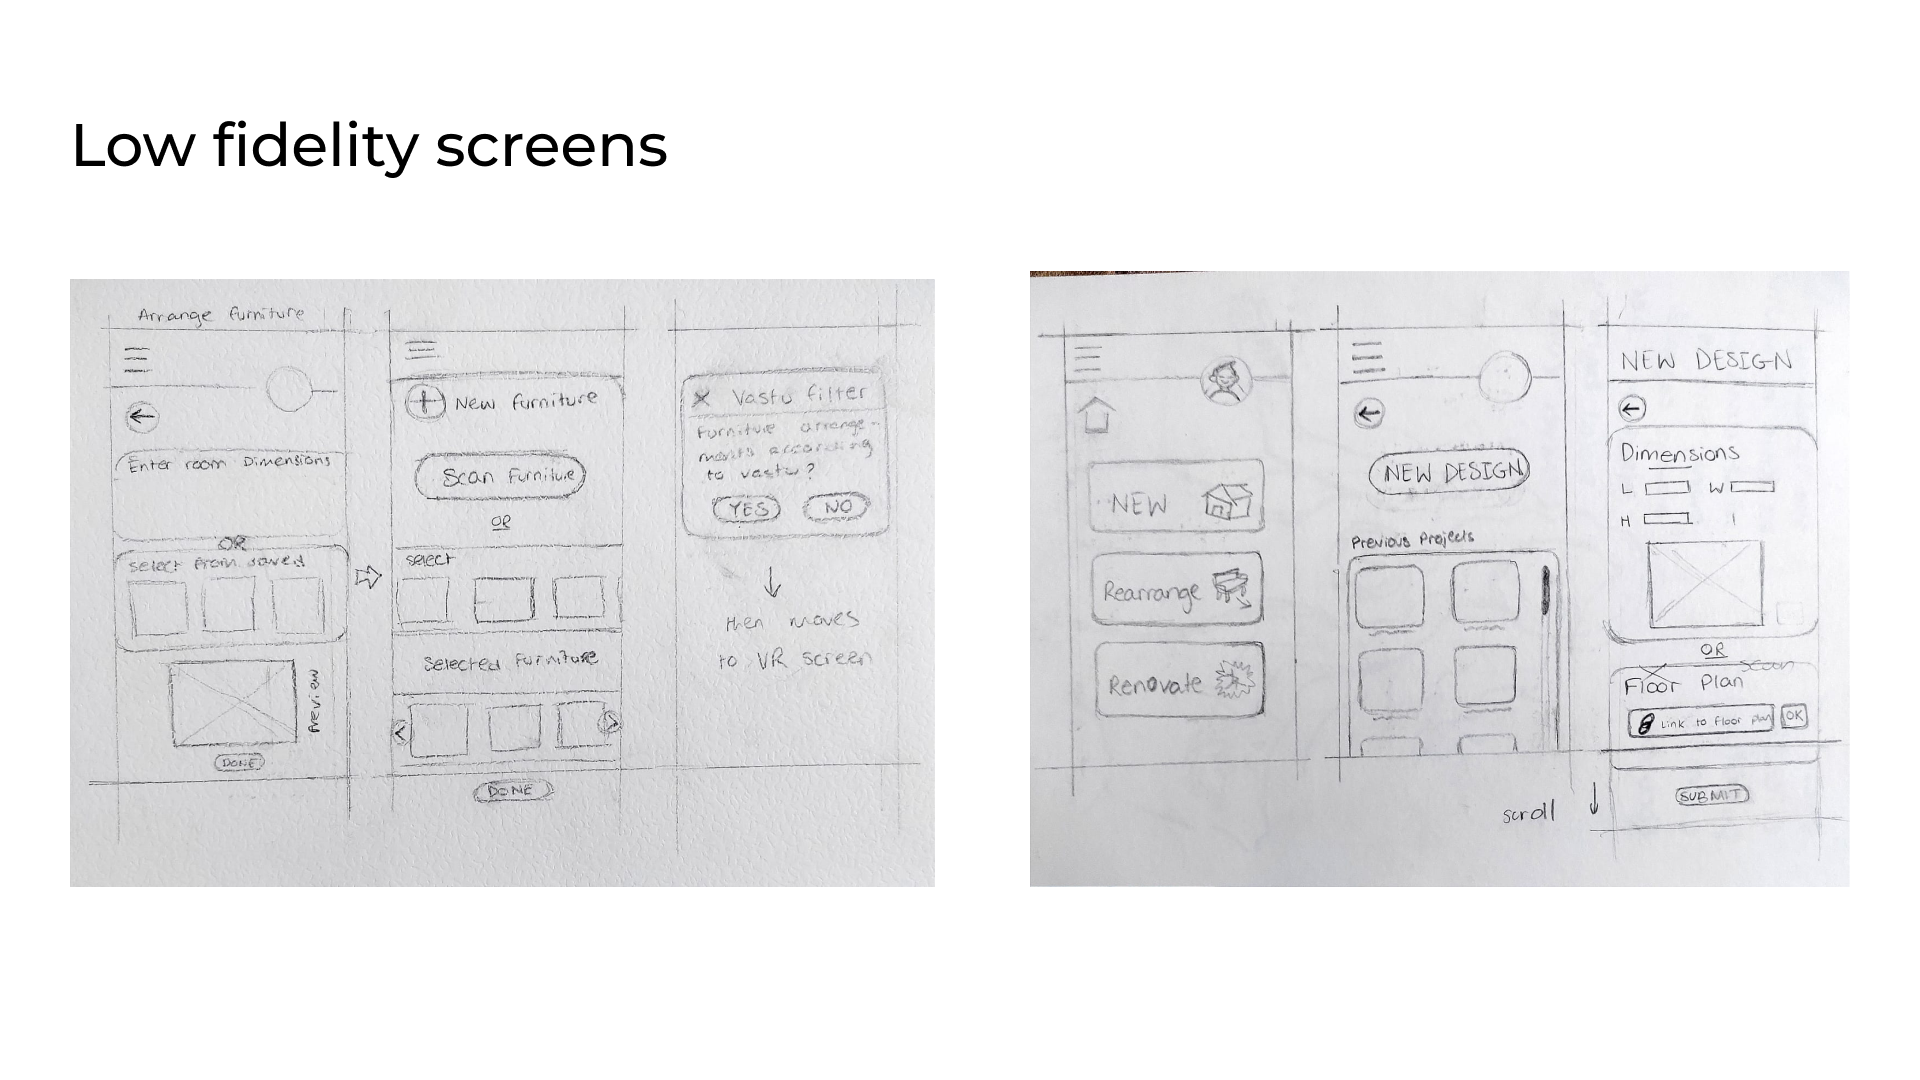 Low fidelity screens
Arrange furniture
Enter room Dimensions
OR
Select from saved
Preview
DONE
New furniture
Scan Furniture
OR
select
Selected Furniture
DONE
X Vastu filter
Furniture arrange-
ments according
to vastu?
YES NO
then moves
to VR screen
NEW
Rearrange
Renovate
NEW DESIGN
Previous Projects
scroll
NEW DESIGN
Dimensions
L W
H
OR
scan
Floor Plan
Link to floor plan OK
SUBMIT